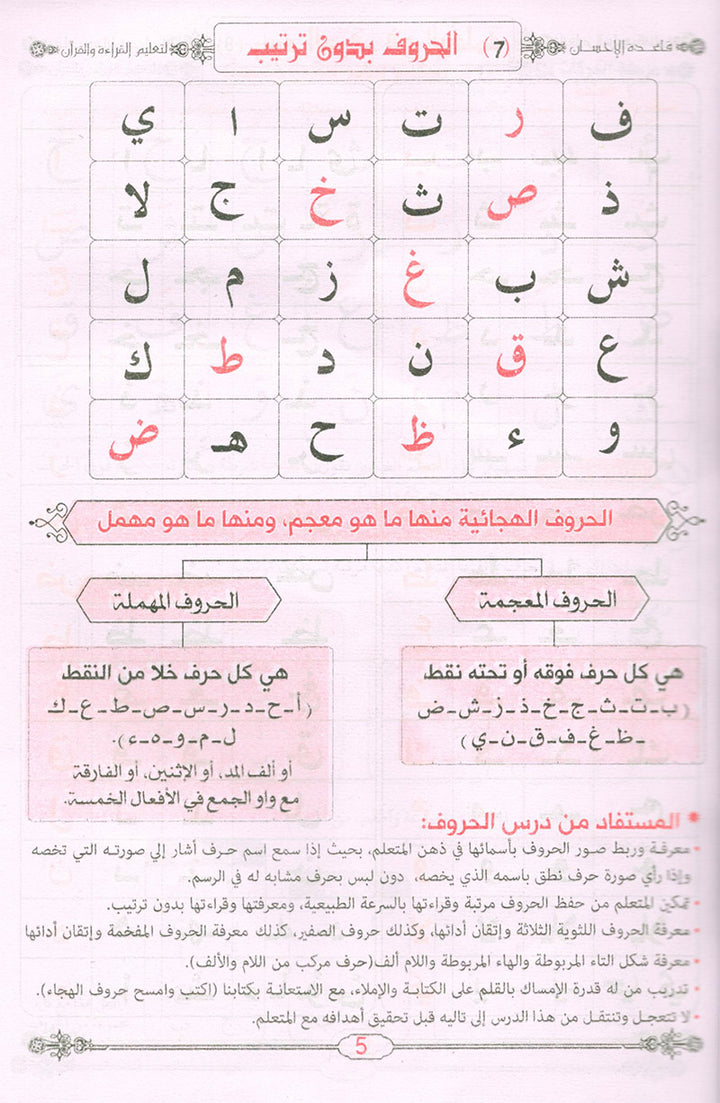 قاعدة الإحسان (7) الحروف بدون ترتيب لتعليم القراءة والقرآن
ف ر ت س ا ي
ذ ص ث خ ج لا
ش ب غ ز م ل
ع ق ن د ط ك
و ء ظ ح هـ ض
الحروف الهجائية منها ما هو معجم، ومنها ما هو مهمل
الحروف المعجمة
هي كل حرف فوقه أو تحته نقط
(ب-ت-ث-ج-خ-ذ-ز-ش-ض
-ظ-غ-ف-ق-ن-ي)
الحروف المهملة
هي كل حرف خلا من النقط
(أ-ح-د-ر-س-ص-ط-ع-ك
ل-م-و-ه-ء).
أو ألف المد، أو الإثنين، أو الفارقة
مع واو الجمع في الأفعال الخمسة.
* المستفاد من درس الحروف:
- معرفة وربط صور الحروف بأسمائها في ذهن المتعلم، بحيث إذا سمع اسم حرف أشار إلي صورته التي تخصه
وإذا رأي صورة حرف نطق باسمه الذي يخصه، دون لبس بحرف مشابه له في الرسم.
- تمكين المتعلم من حفظ الحروف مرتبة وقراءتها بالسرعة الطبيعية، ومعرفتها وقراءتها بدون ترتيب.
- معرفة الحروف اللثوية الثلاثة وإتقان أدائها، وكذلك حروف الصفير، كذلك معرفة الحروف المفخمة وإتقان أدائها
- معرفة شكل التاء المربوطة والهاء المربوطة واللام ألف(حرف مركب من اللام والألف).
- تدريب من له قدرة الإمساك بالقلم على الكتابة والإملاء، مع الاستعانة بكتابنا (اكتب وامسح حروف الهجاء).
- لا تتعجل وتنتقل من هذا الدرس إلى تاليه قبل تحقيق أهدافه مع المتعلم.
5